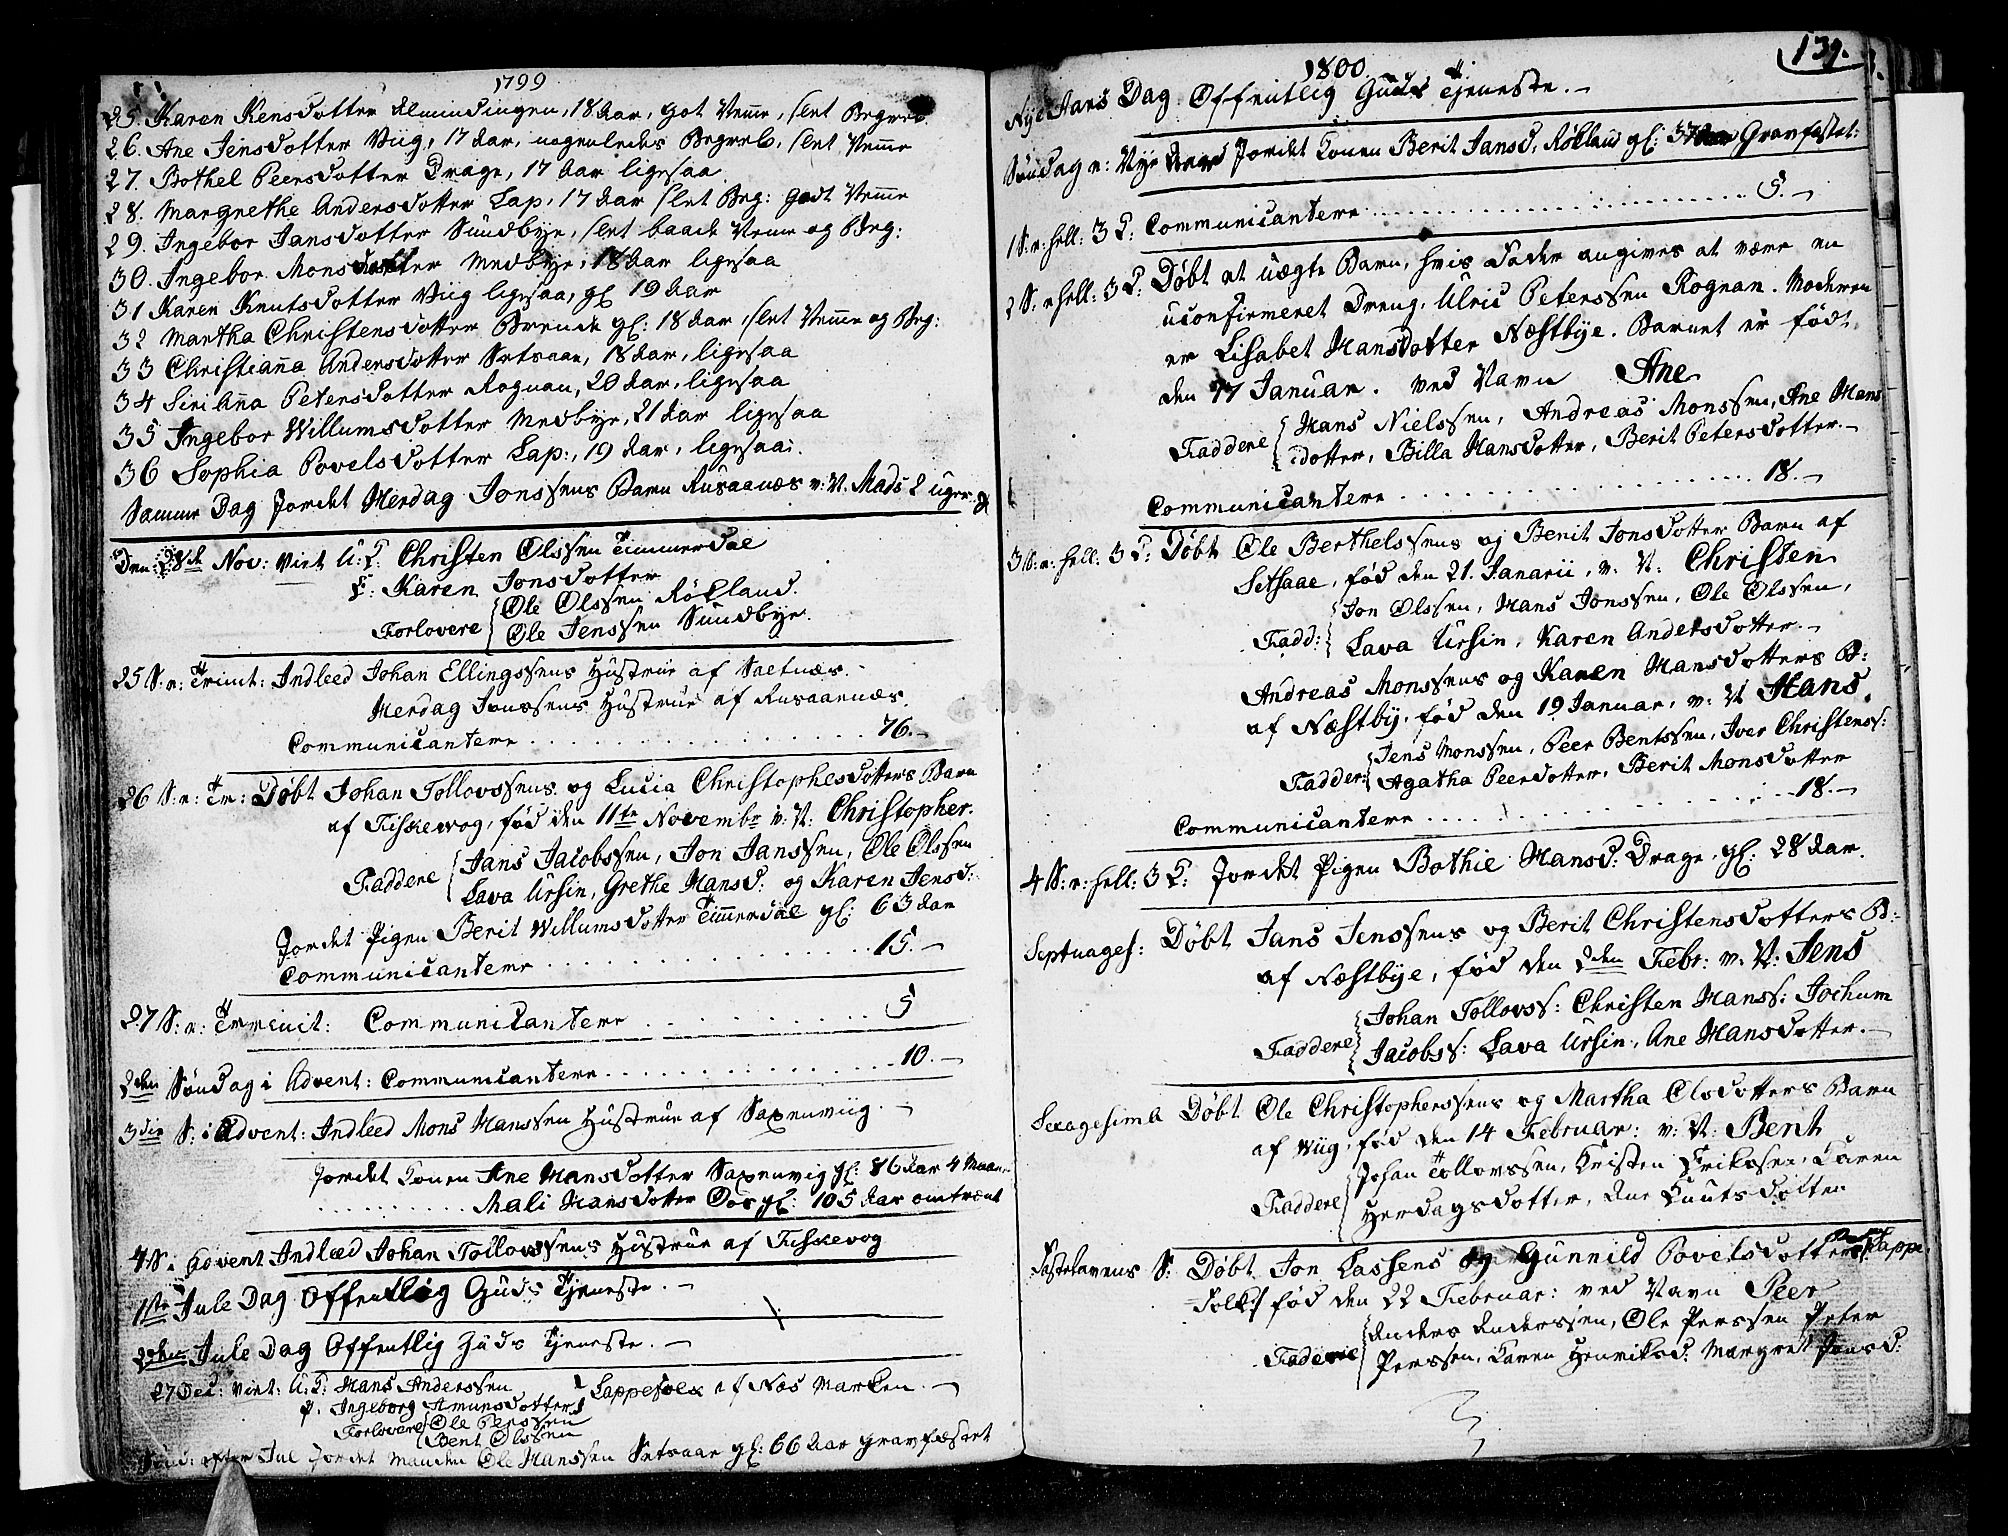 1799
25. Karen Kensdotter Almindingen, 18 Aar, got Nemme, slet Begreb.
26. Ane Jensdotter Viig, 17 Aar, nogenledes Begreb, slet Nemme
27. Bothel Peersdotter Drage, 17 Aar ligesaa
28. Margrethe Andersdotter Lap, 17 Aar slet Beg: godt Nemme
29. Ingebor Jansdotter Sundbye, slet baade Neme og Beg:
30. Ingebor Monsdotter Medbye, 18 Aar ligesaa
31 Karen Knutsdotter Viig ligesaa, gl 19 Aar
32 Martha Christensdotter Brende gl: 18 Aar slet Nemme og Beg:
33 Christiana Andersdotter Setsaae, 18 Aar, ligesaa
34 Siri Anna Petersdotter Rognan, 20 Aar, ligesaa
35 Ingebor Willumsdotter Medbye, 21 Aar ligesaa
36 Sophia Povelsdotter Lap:, 19 Aar, ligesaa.
Samme Dag Jordet Herdag Jonssens Barn Rusaanæs v: N. Mads 2 uger gl
Den 28de Nov: Viet U: K: Christen Olssen Timmerdal
P: Karen Jonsdotter
Forlovere Ole Olssen Røkland.
Ole Jenssen Sundbye.
25 S: e: Trinit: Indleed Johan Ellingssens Hustrue af Saltnæs.
Herdag Jonssens Hustrue af Rusaanæs.
Communicantere . . . 76. -
26 S: e: Tr: Døbt Johan Tollovssens og Lucia Christophersdotters Barn
af Fiskevog, fød den 11te Novembr v: N: Christopher.
Faddere Jans Jacobssen, Jon Janssen, Ole Olssen
Lava Ursin, Grethe Hansd: og Karen Jensd:
Jordet Pigen Berit Willumsdotter Timmerdal gl: 63 Aar
Communicantere . . . 15. -
27 S: e: Trinit: Communicantere . . . 5
2den Søndag i Advent: Communicantere . . . 10. -
3die S: i Advent: Indleed Mons Hanssen Hustrue af Saxenviig. -
Jordet Konen Ane Hansdotter Saxenvig gl: 86 Aar 4 Maan
. . . Mali Hansdotter Oos gl: 105 Aar omtrent
4 S i Advent Indleed Johan Tollovssens Hustrue af Fiskevog
1ste Jule Dag Offentlig Guds Tjeneste. -
2den Jule Dag Offentlig Guds Tjeneste. -
27 Dec: Viet: U: K: Hans Anderssen
P. Ingeborg Amunsdotter Lappefolk af Næs Marken. -
Forlovere Ole Perssen
Bent Olssen
Sønd: efter Jul Jordet Manden Ole Hanssen Setsaae gl: 66 Aar Gravfæstet
1800
139.
Nye Aars Dag Offentlig Guds Tjeneste. -
Søndag e: Nye Aar Jordet Konen Berit Jansd, Røkland gl: 37 Aar Gravfæstet:
1 S: e: Hell: 3 K: Communicantere . . . 5. -
2 S: e Hell: 3 K: Døbt et uægte Barn, hvis Fader angives at være en
uconfirmeret Dreng, Ulric Peterssen Rognan. Moderen
er Lisabet Hansdotter Næstbye. Barnet er født
den 17 Januar. ved Navn Ane
Faddere Hans Nielssen, Andreas Monssen, Ane Hans
dotter, Billa Hansdotter, Berit Petersdotter. -
Communicantere . . . 18. -
3 S: e: Hell: 3 K: Døbt Ole Berthelssens og Berit Jonsdotter Barn af
Setsaae, fød den 21. Janarii, v: N: Christen
Fadd: Jon Olssen, Hans Jonssen, Ole Olssen,
Lava Ursin, Karen Andersdotter. -
Andreas Monssens og Karen Hansdotters B:
af Næstby, fød den 19 Januar, v: N Hans.
Fadder: Jens Monssen, Peer Bentssen, Iver Christenss:
Agatha Peersdotter, Berit Monsdotter
Communicantere . . . 18. -
4 S: e: Hell: 3 K: Jordet Pigen Bothie Hansd: Drage, gl: 28 Aar.
Septuages: Døbt Jans Jenssens og Berit Christensdotters B:
af Næstbye, fød den 2den Febr: v: N: Jens
Faddere Johan Tollovss: Christen Hanss: Jochum
Jacobss: Lava Ursin, Ane Hansdotter. -
Sexagesima Døbt Ole Christopherssens og Martha Olsdotters Barn
af Wiig, fød den 14 Februar: v: N: Bent
Faddere Johan Tollovssen, Kristen Erikssen, Karen
Herdagsdotter, Ane Knutsdotter
Fastelavens S: Døbt Jon Lassens og Gunnild Povelsdotters Lappe
Folk fød den 22 Februar: ved Navn Peer
Faddere Anders Anderssen, Ole Perssen Peter
Perssen, Karen Henriksd: Margret Jonsd: